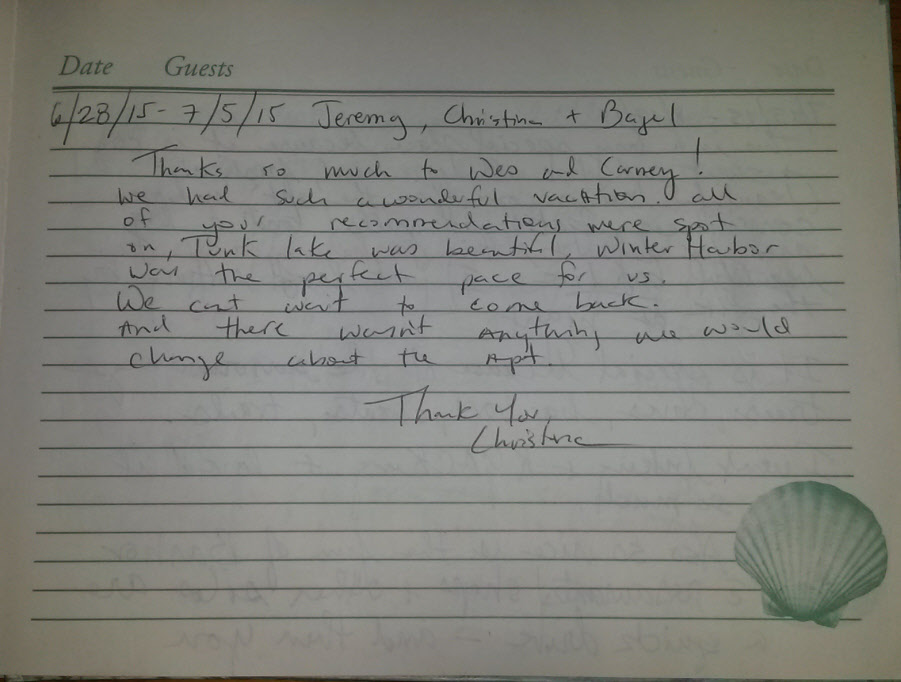 Date Guests
6/28/15 - 7/5/15 Jeremy, Christina + Bagel
Thanks so much to Wes and Carney!
We had such a wonderful vacation. all
of your recommendations were spot
on, Tunk lake was beautiful, Winter Harbor
was the perfect pace for us.
We cant wait to come back.
And there wasn't anything we would
change about the Apt.
Thank You,
Christina